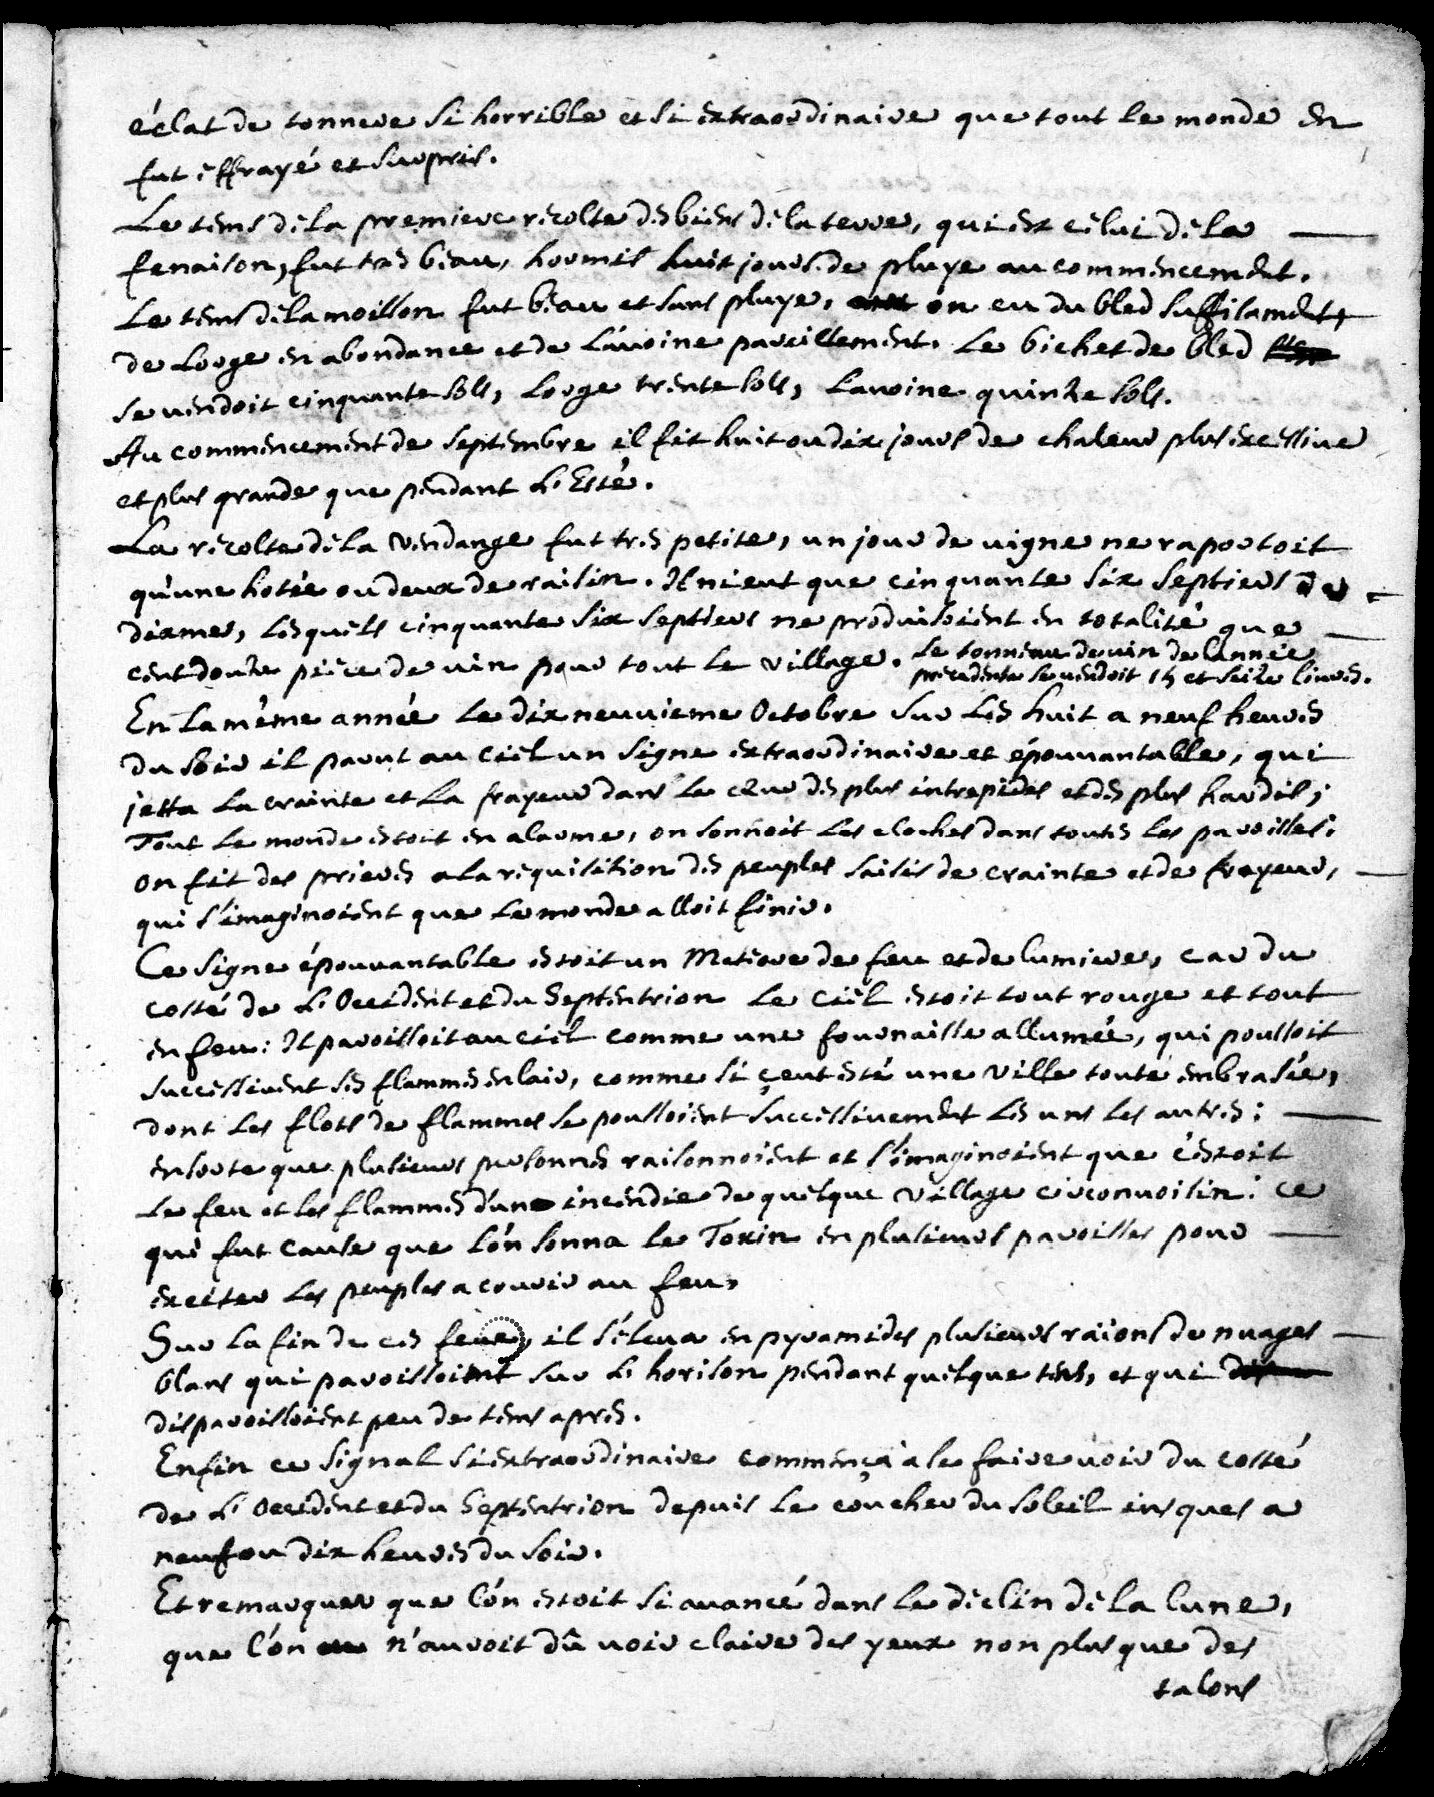 éclat de tonnere si horrible et si extraordinaire que tout le monde en
fut effrayé et surpris.
Le tems de la premiere récolte des biens de la terre, qui est celui de la
fenaison, fut tres beau, hormis huit jours de pluye au commencement.
Le tems de la moisson fut beau et sans pluye, on eu du bled suffisament,
de Lorge en abondance et de L'avoine pareillement. Le bichet de bled
se vendoit cinquante sols, Lorge trente sols, Lavoine quinze sols.
Au commencement de septembre il fit huit ou dix jours de chaleur plus excessive
et plus grande que pendant L'Esté.
La récolte de la vendange fut tres petite, un jour de vigne ne raportoit
qu'une hotée ou deux de raisin. Il n'i eut que cinquante six septiers de
dixme, lesquels cinquante six septiers ne produisoient en totalité que
cent douze piéce de vin pour tout le village. Le tonneau de vin de l'année
précedente se vendoit 15 et seize livres.
En la même année le dix neuvieme Octobre sur les huit a neuf heures
du soir il parut au ciel un signe extraordinaire et épouvantable, qui
jetta la crainte et la frayeur dans le cœur des plus intrepides et des plus hardis;
Tout le monde estoit en alarme, on sonnoit les cloches dans toutes les paroisses.
on fit des prieres a la réquisition des peuples saisis de crainte et de frayeur,
qui s'imaginoient que le monde alloit finir.
Ce signe épouvantable estoit un Meteore de feu et de lumiere, car du
costé de L'Occident et du Septentrion le ciel estoit tout rouge et tout
en feu: Il paroissoit au ciel comme une fournaise allumée, qui poussoit
successivent ses flammes en lair, comme si çeut esté une ville toute embrasée,
dont les flots de flammes se poussoient successivement les uns les autres;
ensorte que plusieurs personnes raisonnoient et s'imaginoient que c'estoit
le feu et les flammes d'un incendie de quelque village circonvoisin: ce
qui fut cause que l'ón sonna le Toxin en plusieurs paroisses pour
exciter les peuples a courir au feu.
Sur la fin de ces feux, il s'éleva en pyramides plusieurs raions de nuages
blans qui paroissoient sur L'horison pendant quelque tems, et qui
disparoissoient peu de tems apres.
Enfin ce signal si extraordinaire commença à se faire voir du costé
de L'Occident et du Septentrion depuis le coucher du soleil jusques a
neuf ou dix heures du soir.
Et remarquer que l'ón estoit si avancé dans le déclin de la lune,
que l'ón n'auroit dû voir claire des yeux non plus que des
talons